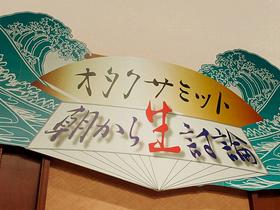 オタクサミット
朝から生討論